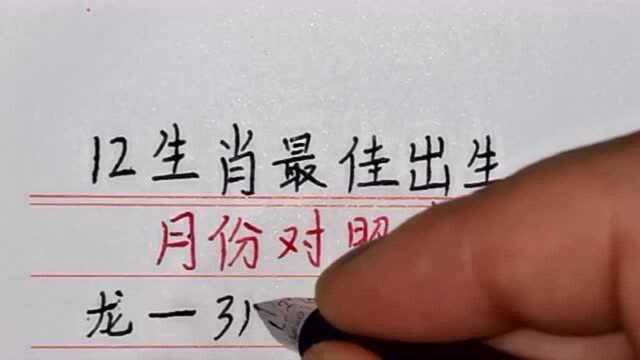 12生肖最佳出生
月份对照
龙一3